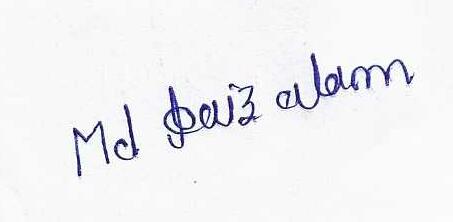 Md Faiz alam